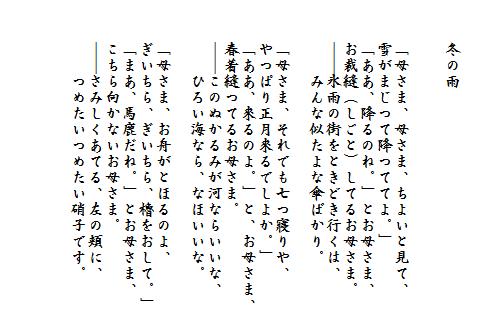 冬の雨
「母さま、母さま、ちよいと見て、
雪がまじつて降つててよ。」
「ああ、降るのね。」とお母さま、
お裁縫（しごと）してるお母さま。
――氷雨の街をときどき行くは、
みんな似たよな傘ばかり。
「母さま、それでも七つ寝りや、
やつぱり正月来るでしよか。」
「ああ、来るのよ。」と、お母さま、
春着縫つてるお母さま。
――このぬかるみが河ならいいな、
ひろい海なら、なほいいな。
「母さま、お舟がとほるのよ、
ぎいちら、ぎいちら、櫓をおして。」
「まあ、馬鹿だね。」とお母さま、
こちら向かないお母さま。
――さみしくあてる、左の頬に、
つめたいつめたい硝子です。